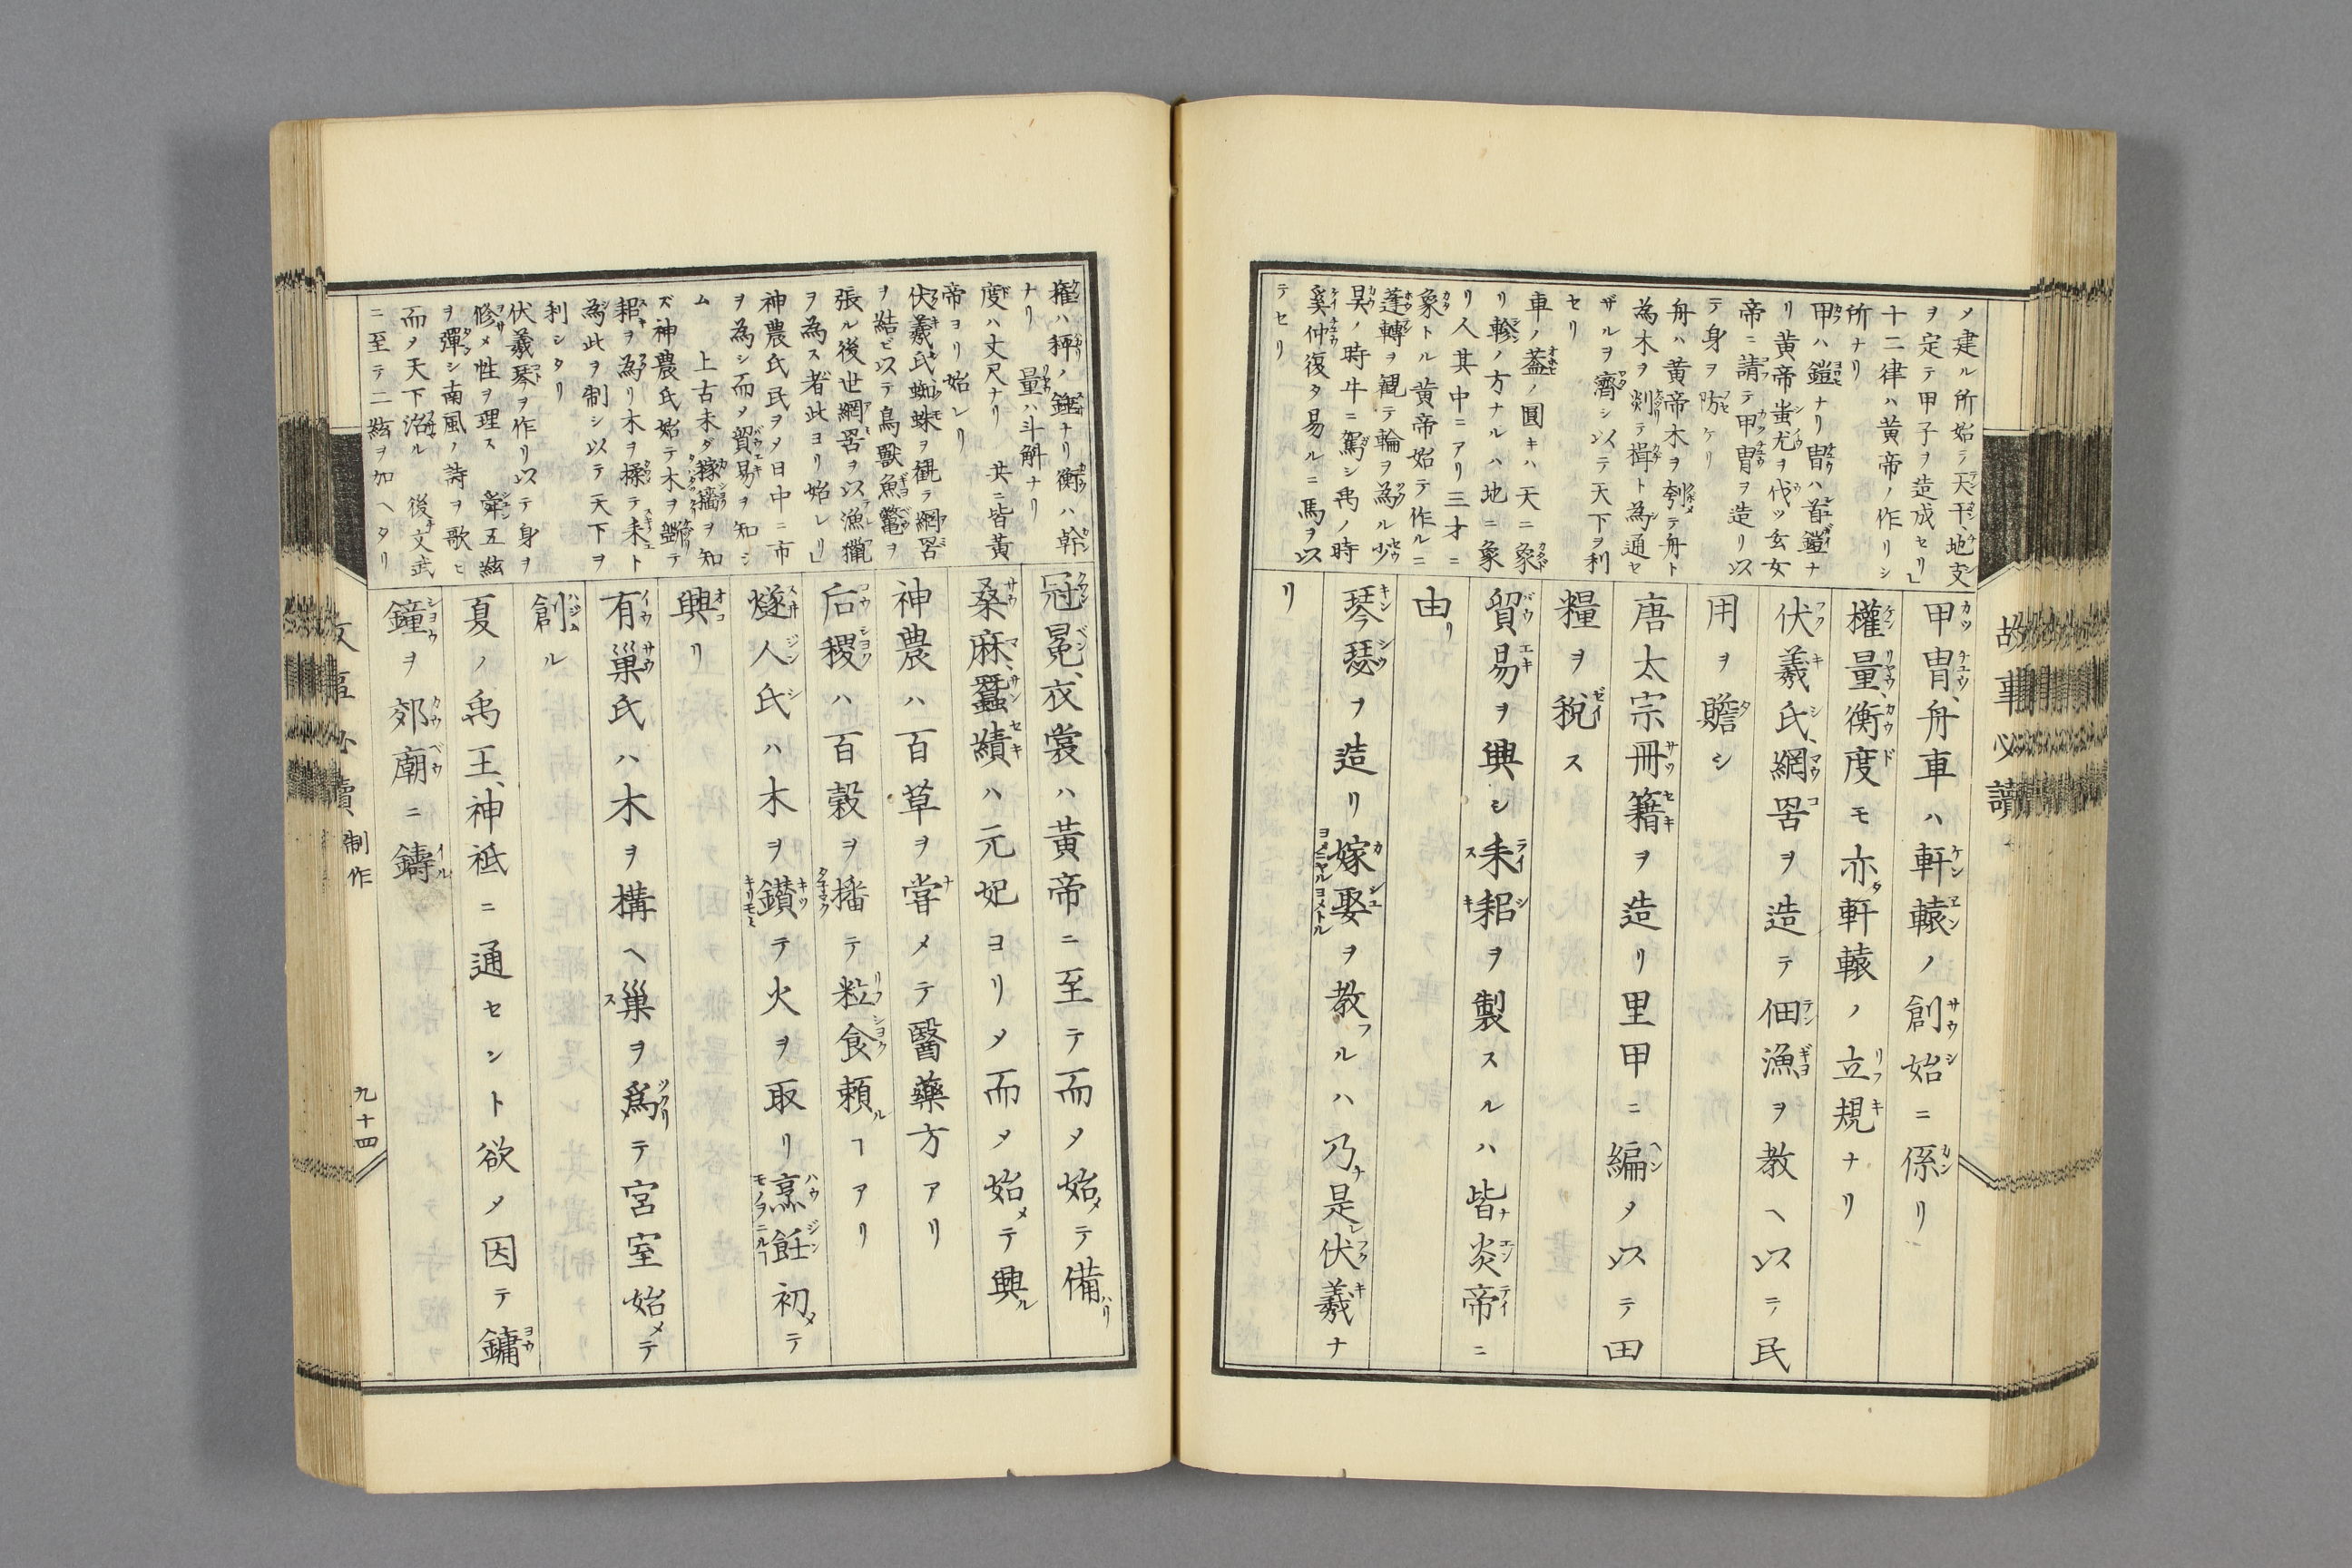 故事必讀
ノ建ル所始テ天干、地支
ヲ定テ甲子ヲ造成セリ」
十二律ハ黄帝ノ作リシ
所ナリ
甲ハ鎧ナリ冑ハ首鎧ナ
リ黄帝蚩尤ヲ伐ツ玄女
帝ニ請テ甲冑ヲ造リ以
テ身ヲ防ケリ
舟ハ黄帝木ヲ刳テ舟ト
為木ヲ剡テ楫ト為通セ
ザルヲ濟シ以テ天下ヲ利
セリ
車ノ蓋ノ圓キハ天ニ象
リ軫ノ方ナルハ地ニ象
リ人其中ニアリ三才ニ
象トル黄帝始テ作ルニ
蓬轉ヲ観テ輪ヲ為ル少
昊ノ時牛ニ駕シ禹ノ時
奚仲復タ易ルニ馬ヲ以
テセリ
甲冑、舟車ハ軒轅ノ創始ニ係リ
權量、衡度モ亦軒轅ノ立規ナリ
伏羲氏、網罟ヲ造テ佃漁ヲ教ヘ以テ民
用ヲ贍シ
唐太宗冊籍ヲ造リ里甲ニ編メ以テ田
糧ヲ税ス
貿易ヲ興シ耒耜ヲ製スルハ皆炎帝ニ
由リ
琴瑟ヲ造リ嫁娶ヲ教フルハ乃是伏羲ナ
リ
權ハ秤ノ錘ナリ衡ハ幹
ナリ　量ハ斗斛ナリ
度ハ丈尺ナリ　共ニ皆黄
帝ヨリ始レリ
伏羲氏蜘蛛ヲ観テ網罟
ヲ結ビ以テ鳥獸魚鼈ヲ
張ル後世網罟ヲ以テ漁獵
ヲ為ス者此ヨリ始レリ」
神農氏民ヲメ日中ニ市
ヲ為シ而メ貿易ヲ知シ
ム　上古未ダ稼穡ヲ知
ズ神農氏始テ木ヲ斵テ
耜ヲ為リ木ヲ揉テ耒ト
為此ヲ制シ以テ天下ヲ
利シタリ
伏羲琴ヲ作リ以テ身ヲ
修メ性ヲ理ス　舜五絃
ヲ彈シ南風ノ詩ヲ歌ヒ
而メ天下治ル　後文武
ニ至テ二絃ヲ加ヘタリ
冠冕、衣裳ハ黃帝ニ至テ而メ始メテ備ハリ
桑麻、蠶績ハ元妃ヨリメ而メ始メテ興ル
神農ハ百草ヲ甞メテ醫藥方アリ
后稷ハ百穀ヲ播テ粒食頼ルヿアリ
燧人氏ハ木ヲ鑚テ火ヲ取リ烹飪初メテ
興リ
有巢氏ハ木ヲ構ヘ巢ヲ爲テ宮室始メテ
創ル
夏ノ禹王、神祇ニ通セント欲メ因テ鏞
鐘ヲ郊廟ニ鑄
制作
九十四